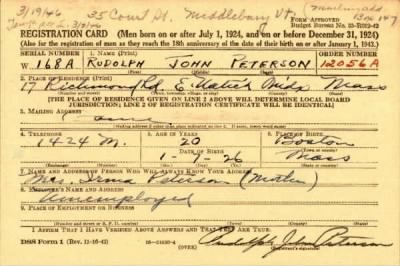 3/19/46 35 Court St. Middlebury Vt.
Form Approved
Budget Bureau No.
REGISTRATION CARD (Men born on or after July 1, 1924, and on or before December 31, 1924)
(Also for the registration of men as they reach the 18th anniversary of the date of their birth on or after January 1, 1943.)
SERIAL NUMBER 1. NAME (Print) ORDER NUMBER
W 168A RUDOLPH JOHN PETERSON 12056A
2. PLACE OF RESIDENCE (Print)
17 Richmond Rd Natick Mass
[THE PLACE OF RESIDENCE GIVEN ON LINE 2 ABOVE WILL DETERMINE LOCAL BOARD
JURISDICTION; LINE 2 OF REGISTRATION CERTIFICATE WILL BE IDENTICAL]
3. MAILING ADDRESS
Same
4. TELEPHONE 5. AGE IN YEARS 6. PLACE OF BIRTH
1424 M. 20 Boston
DATE OF BIRTH
1-7-26 Mass
7. NAME AND ADDRESS OF PERSON WHO WILL ALWAYS KNOW YOUR ADDRESS
Mrs. Peterson (Mother)
8. EMPLOYER'S NAME AND ADDRESS
Unemployed
9. PLACE OF EMPLOYMENT OR BUSINESS
I AFFIRM THAT I HAVE VERIFIED ABOVE ANSWERS AND THAT THEY ARE TRUE.
DSS Form 1 (OVER) Rudolph John Peterson